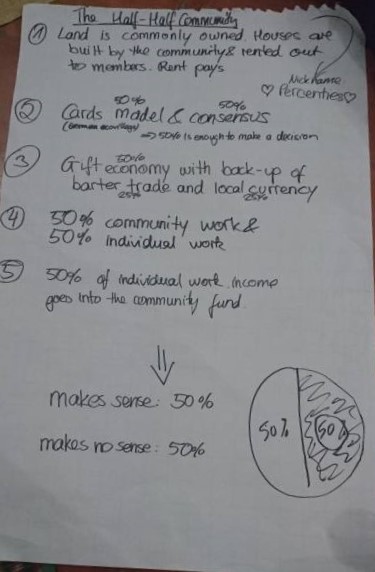 The Half-Half Community
① Land is commonly owned. Houses are
built by the community & rented out
to members. Rent pays
Nickname:
♡ Percenties ♡
50% 50%
② Cards model & consensus
(German ecovillage) ⇒ 50% is enough to make a decision
50%
③ Gift economy with back-up of
barter trade and local currency
25% 25%
④ 50% community work &
50% individual work
⑤ 50% of individual work income
goes into the community fund
⇓
makes sense: 50%
makes no sense: 50%
50% 50%